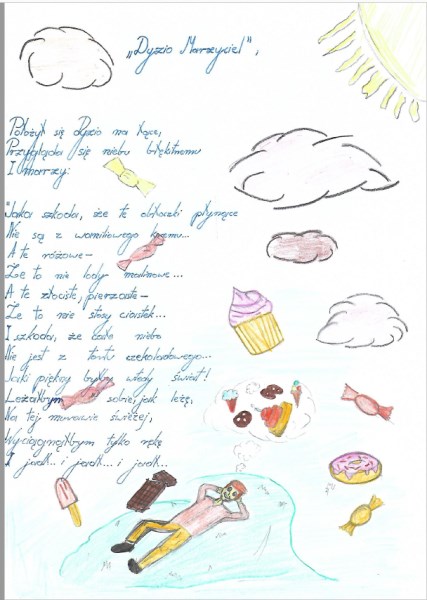 „Dyzio Marzyciel",
Położył się Dyzio na łące,
Przygląda się niebu błękitnemu
I marzy:
"Jaka szkoda, że te obłoczki płynące
Nie są z waniliowego kremu...
A te różowe-
Że to nie lody malinowe...
A te złociste, pierzaste-
Że to nie stosy ciastek...
I szkoda, że całe niebo
Nie jest z tortu czekoladowego...
Jaki piękny byłby wtedy świat!
Leżałbym sobie, jak leżę,
Na tej murawie świeżej,
Wyciągnąłbym tylko rękę
I jadł... i jadł... i jadł...